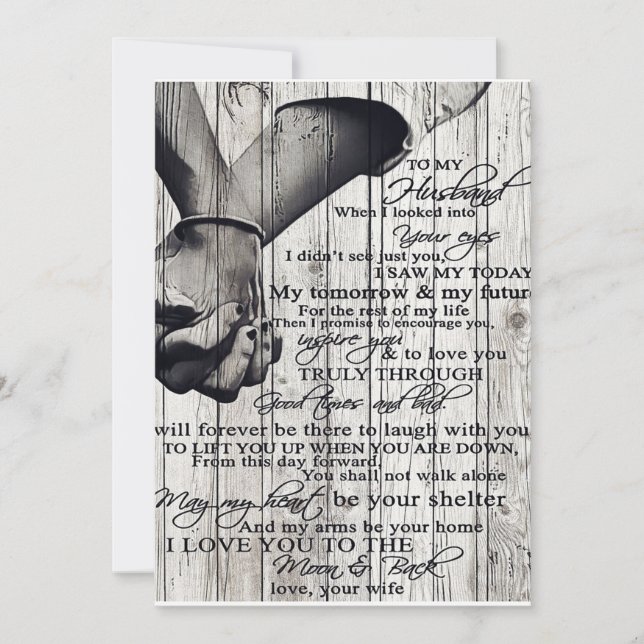 TO MY
Husband
When I looked into
Your eyes
I didn't see just you,
I SAW MY TODAY
My tomorrow & my future
For the rest of my life
Then I promise to encourage you,
inspire you
& to love you
TRULY THROUGH
Good times and bad.
will forever be there to laugh with you
TO LIFT YOU UP WHEN YOU ARE DOWN,
From this day forward,
You shall not walk alone
May my heart be your shelter
And my arms be your home
I LOVE YOU TO THE
Moon & Back
love, your wife